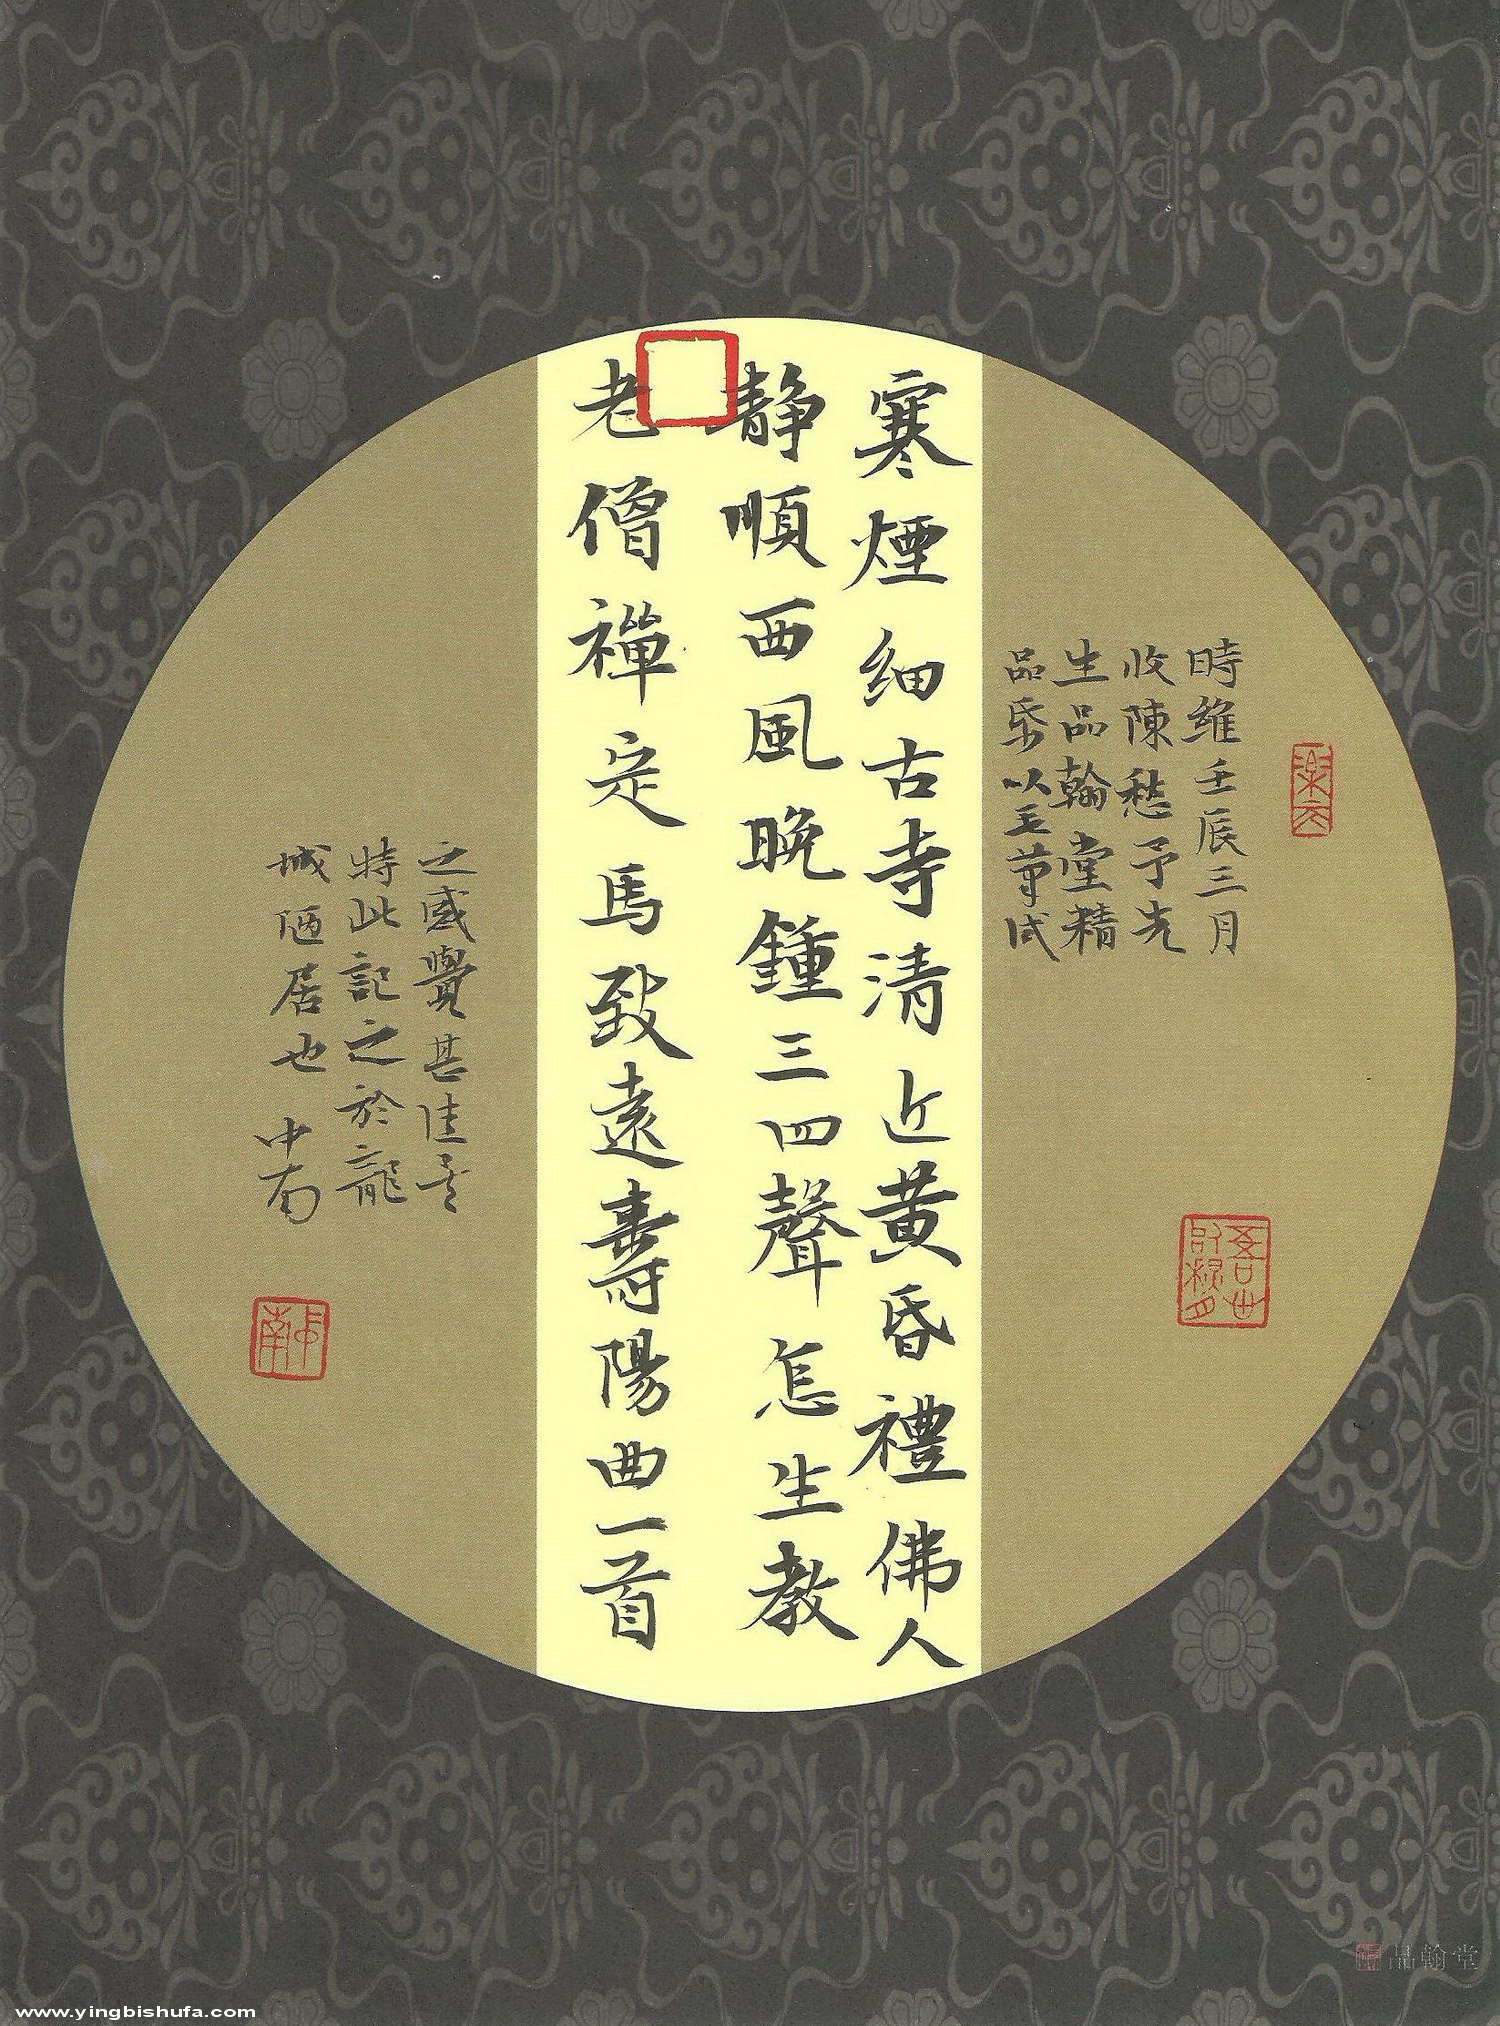 寒煙细古寺清近黄昏禮佛人
静順西風晩鍾三四聲怎生教
老僧禪定馬致遠壽陽曲一首
時維壬辰三月
收陳愁予先
生品翰堂精
品紙以毛筆试
之感覺甚佳
特此記之於龍
城陋居也 中南
中南
品翰堂
www.yingbishufa.com